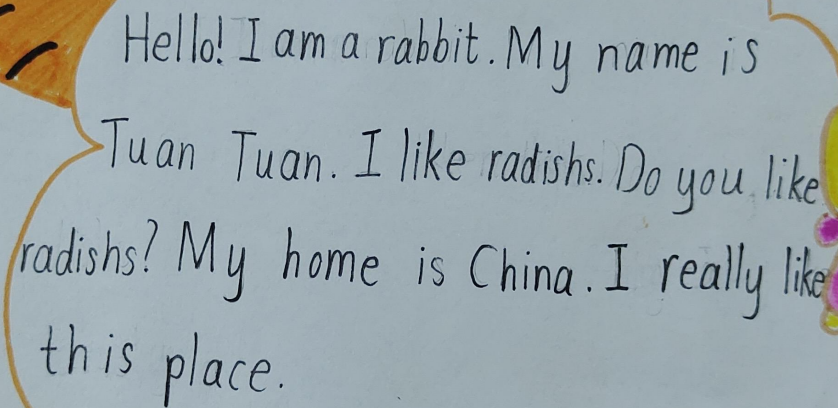 Hello! I am a rabbit. My name is
Tuan Tuan. I like radishs. Do you like
radishs? My home is China. I really like
this place.